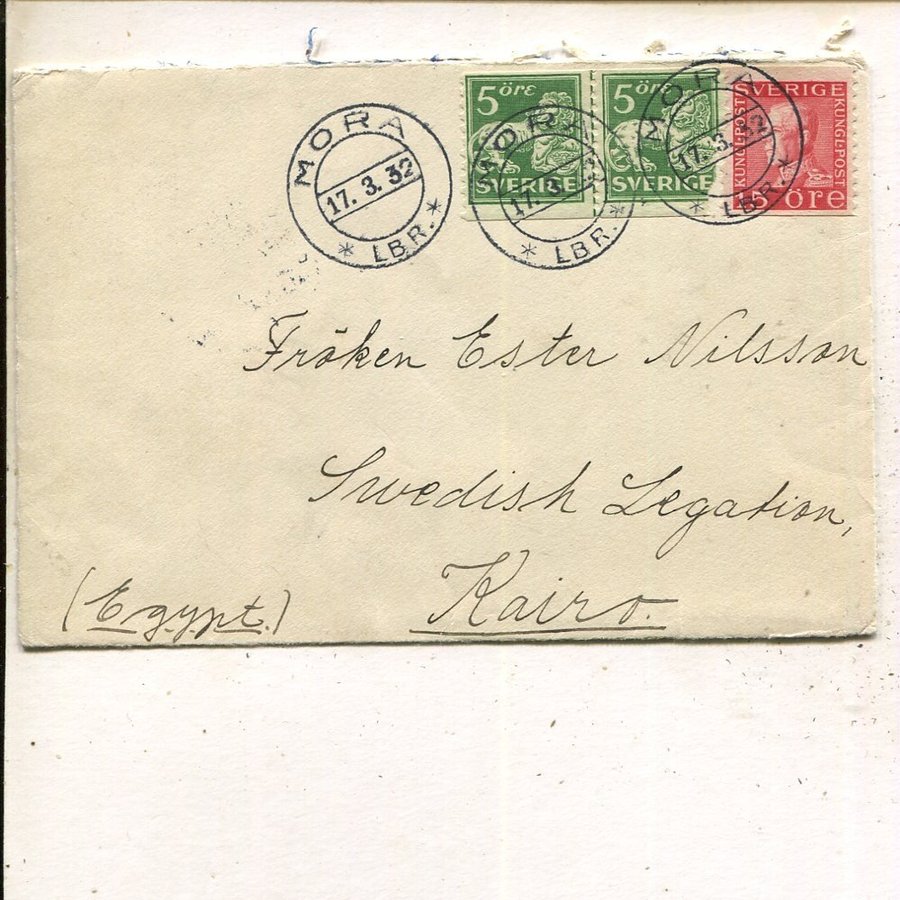 MORA
17. 3. 32
* LBR. *
5 öre
SVERIGE
MORA
17. 3. 3
* LBR. *
5 öre
SVERIGE
MORA
17. 3. 32
LBR. *
SVERIGE
KUNGL·POST
KUNGL·POST
15 öre
Fröken Ester Nilsson
Swedish Legation,
Kairo.
(Egypt.)